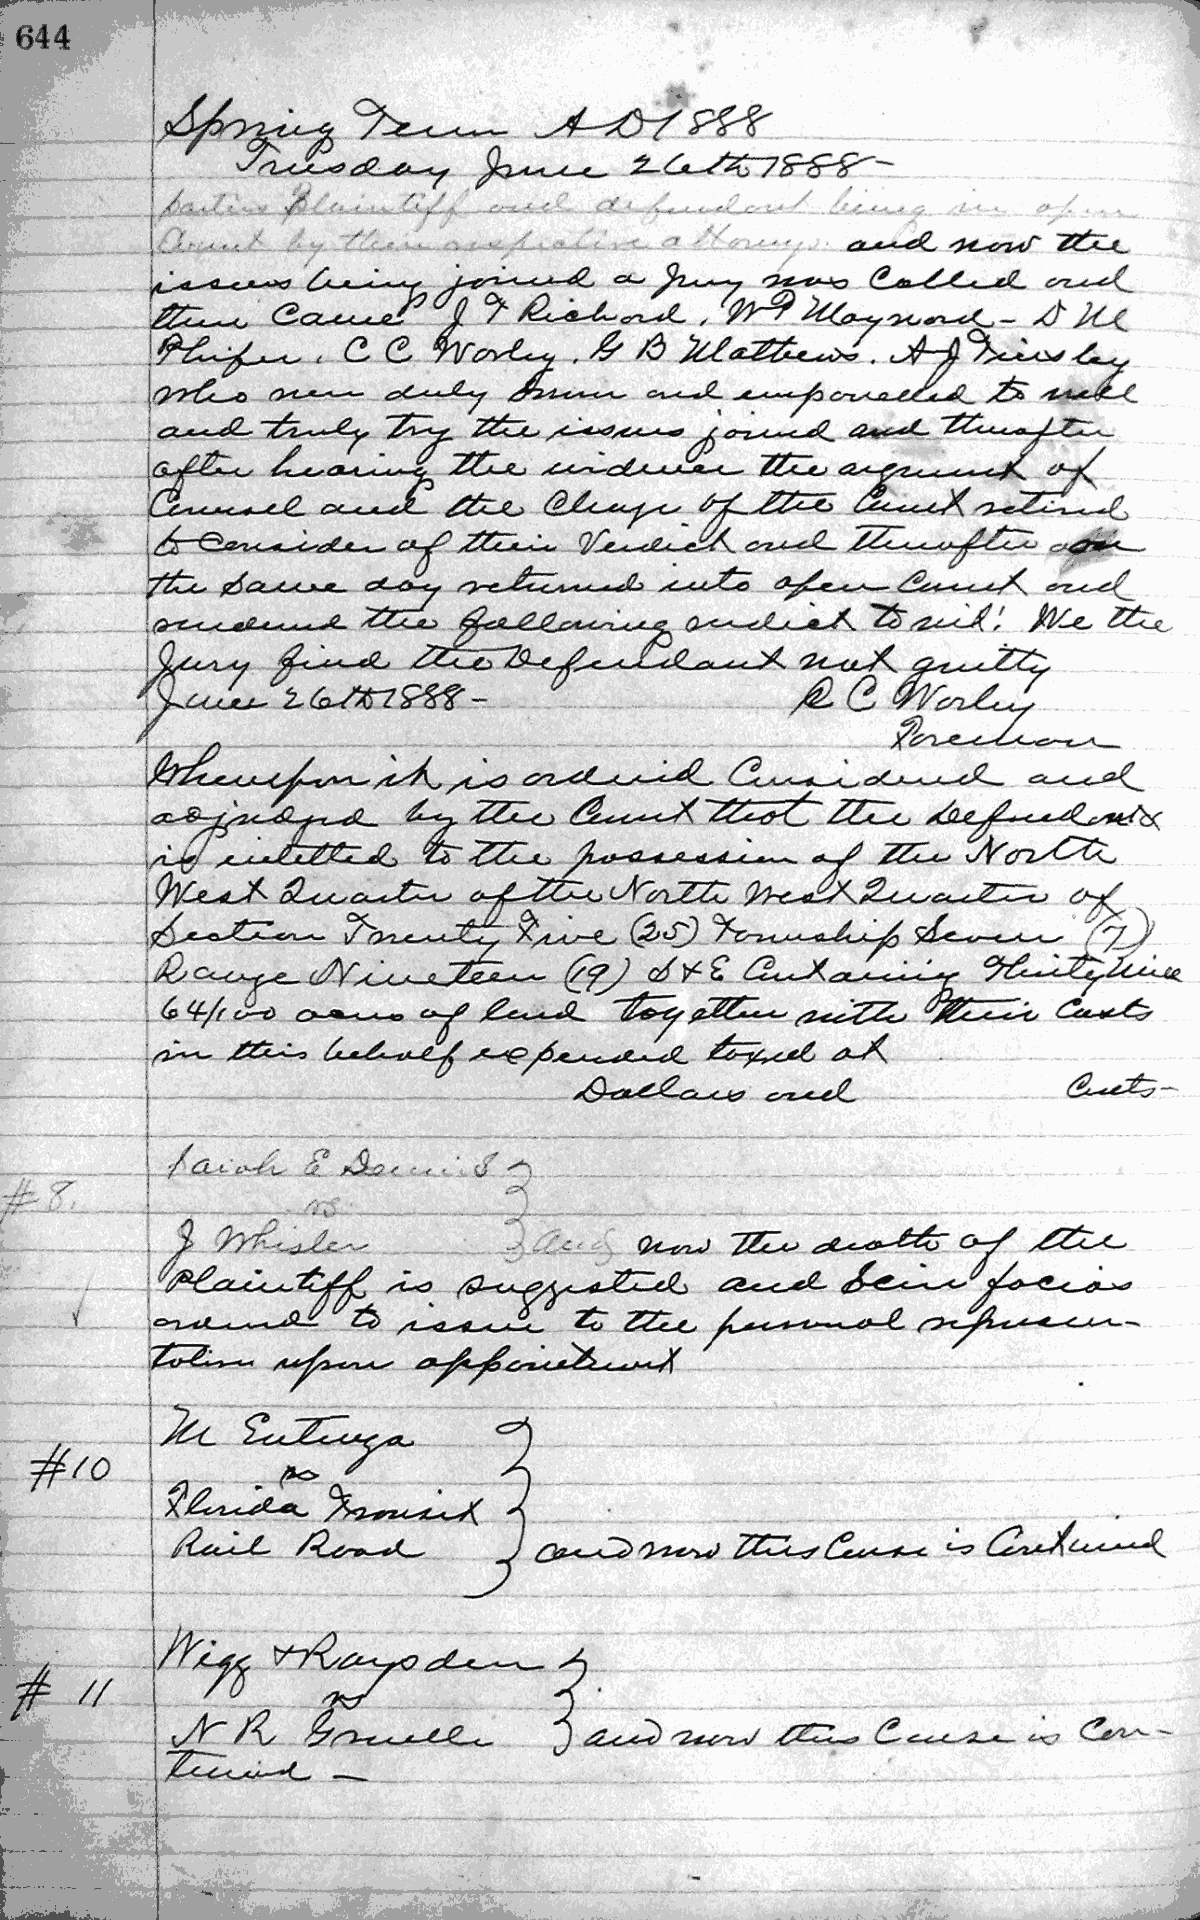 644
Spring Term A D 1888
Tuesday June 26th 1888-
parties Plaintiff and defendant being in open
Court by their respective attorneys. and now the
issues being joined a Jury was Called and
then Came J F Richard, W P Maynard - D M
Phifer, C C Worley, G B Mathews, A J Tinsley
who were duly Sworn and empanelled to well
and truly try the issues joined and thereafter
after hearing the evidence the argument of
Counsel and the Charge of the Court retired
to Consider of their Verdict and thereafter on
the same day returned into open Court and
rendered the following verdict to wit: We the
Jury find the Defendant not guilty
June 26th 1888- C C Worley
Foreman
Whereupon it is ordered Considered and
adjudged by the Court that the Defendant
is entitled to the possession of the North
West Quarter of the North West Quarter of
Section Twenty Five (25) Township Seven (7)
Range Nineteen (19) S & E Containing Thirty Nine
64/100 acres of land together with their Costs
in this behalf expended taxed at
Dollars and Cents-
Sarah E Dennis
#8. vs
J Whisler and now the death of the
Plaintiff is suggested and Scire facias
ordered to issue to the personal represen-
tative upon appointment
M Entenza
#10 vs
Florida Transit
Rail Road and now this Cause is Continued
Wigg & Raysden
# 11 vs
N R Gruelle and now this Cause is Con-
tinued -